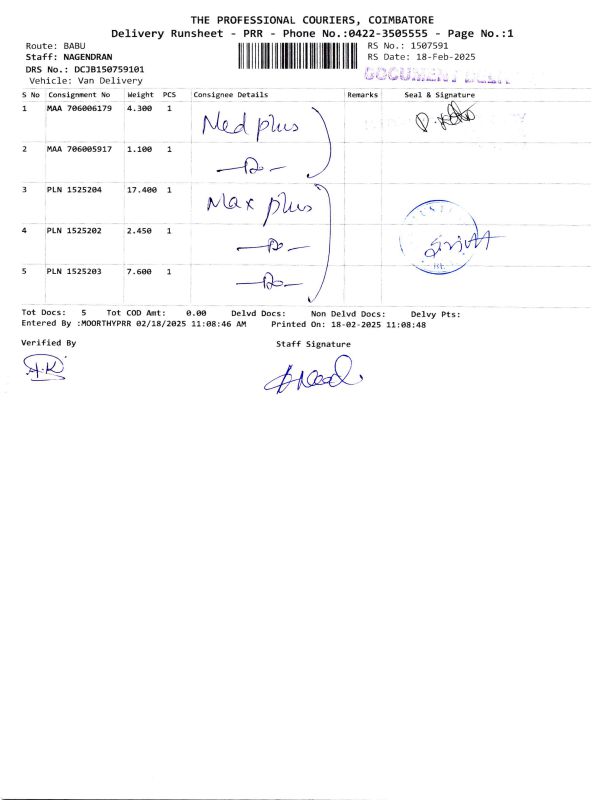 THE PROFESSIONAL COURIERS, COIMBATORE
Delivery Runsheet - PRR - Phone No.:0422-3505555 - Page No.:1
Route: BABU RS No.: 1507591
Staff: NAGENDRAN RS Date: 18-Feb-2025
DRS No.: DCJB150759101
Vehicle: Van Delivery
S No Consignment No Weight PCS Consignee Details Remarks Seal & Signature
1 MAA 706006179 4.300 1 Med plus
2 MAA 706005917 1.100 1 —Do—
3 PLN 1525204 17.400 1 Max plus
4 PLN 1525202 2.450 1 —Do—
5 PLN 1525203 7.600 1 —Do—
Tot Docs: 5 Tot COD Amt: 0.00 Delvd Docs: Non Delvd Docs: Delvy Pts:
Entered By :MOORTHYPRR 02/18/2025 11:08:46 AM Printed On: 18-02-2025 11:08:48
Verified By Staff Signature
A.K